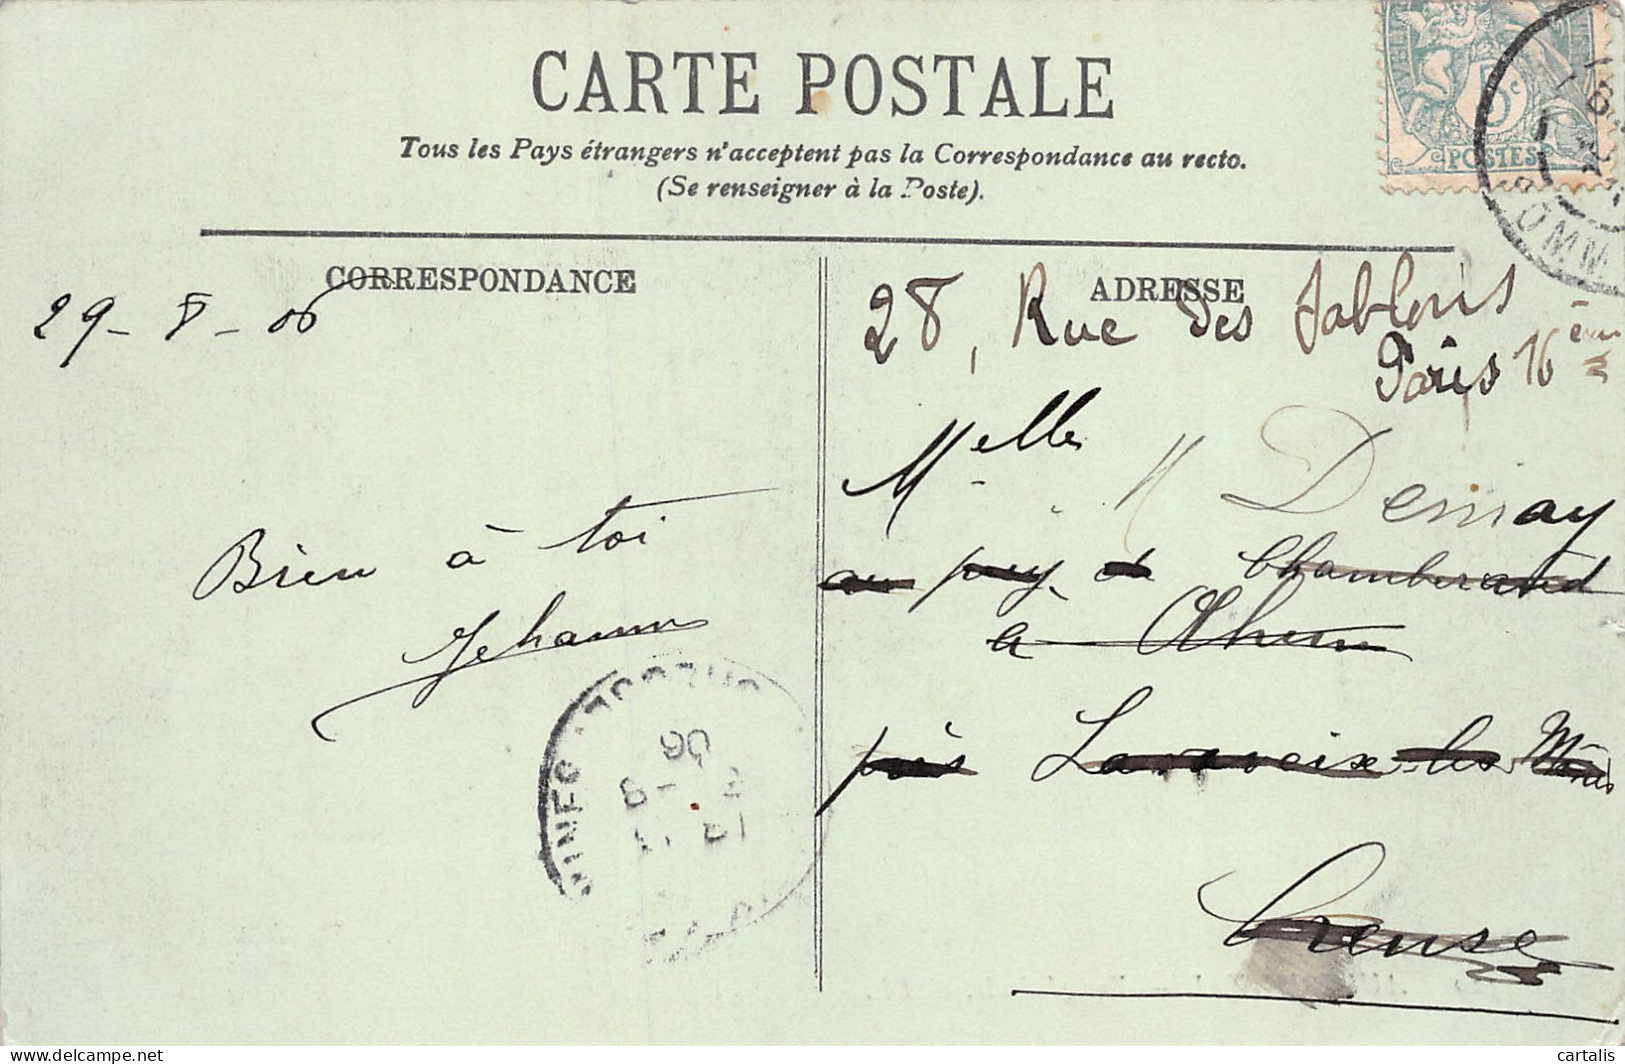 CARTE POSTALE
Tous les Pays étrangers n'acceptent pas la Correspondance au recto.
(Se renseigner à la Poste).
5c
POSTES
OMM
CORRESPONDANCE
29-8-06
Bien à toi
Jehanne
06
ADRESSE
28, Rue des Sablons
Paris 16ème
Melle M Demay
au puy de Chamberaud
à Ahun
près Lavaveix-les Mines
Creuse
delcampe.net
cartalis